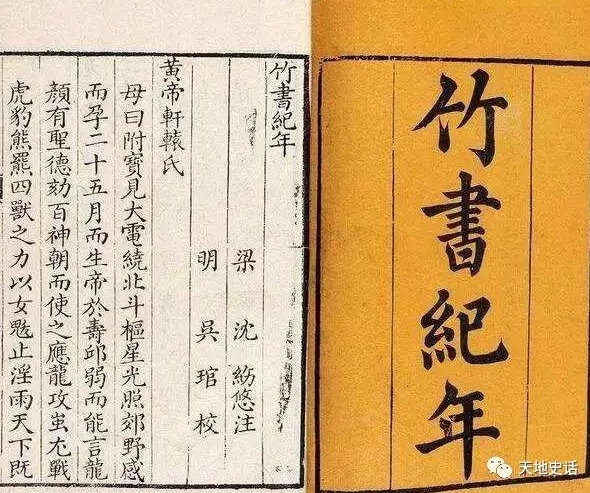 竹書紀年
竹書紀年
梁 沈 紡悠注
明 吳 琯 校
黃帝軒轅氏
母曰附寶見大電繞北斗樞星光照郊野感
而孕二十五月而生帝於壽邱弱而能言龍
顏有聖德劾百神朝而使之應龍攻蚩尤戰
虎豹熊羆四獸之力以女魃止淫雨天下既
天地史话